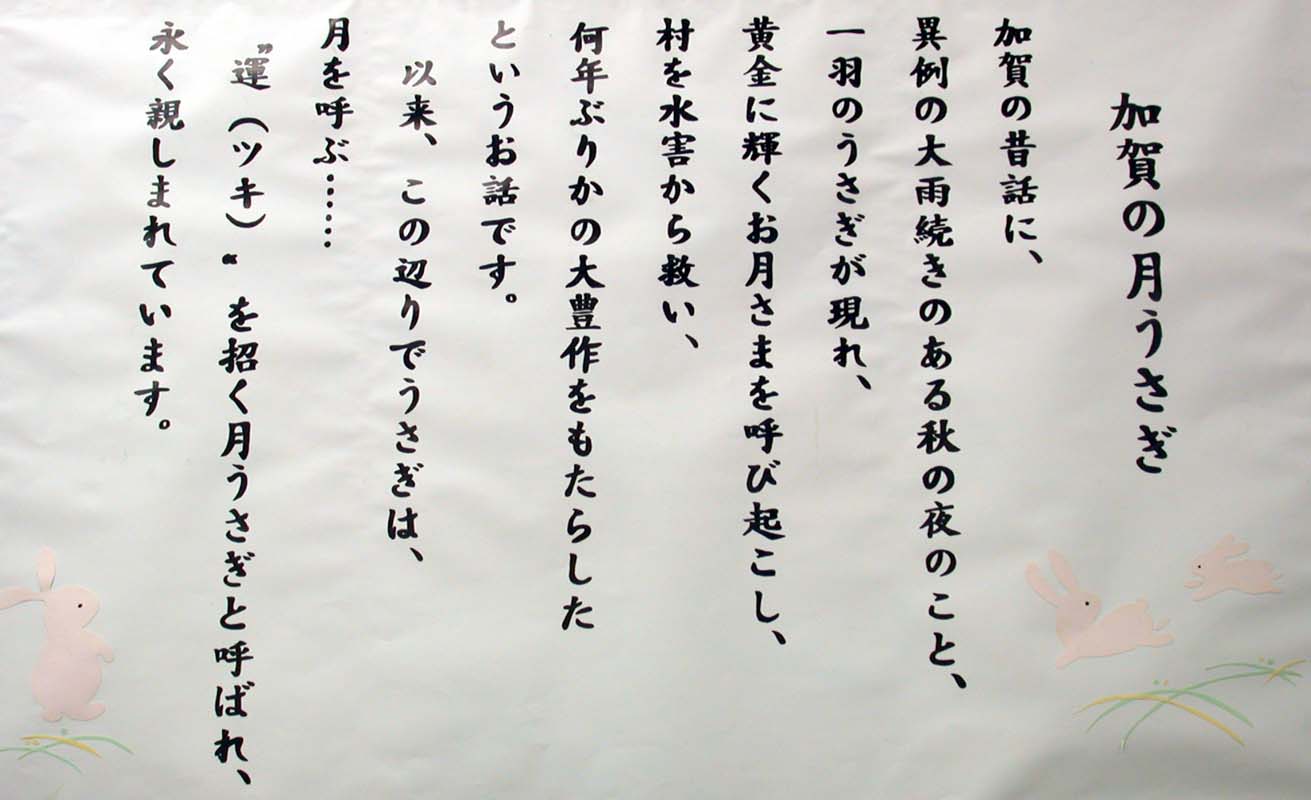 加賀の月うさぎ
加賀の昔話に、
異例の大雨続きのある秋の夜のこと、
一羽のうさぎが現れ、
黄金に輝くお月さまを呼び起こし、
村を水害から救い、
何年ぶりかの大豊作をもたらした
というお話です。
以来、この辺りでうさぎは、
月を呼ぶ……
〝運（ツキ）〟を招く月うさぎと呼ばれ、
永く親しまれています。